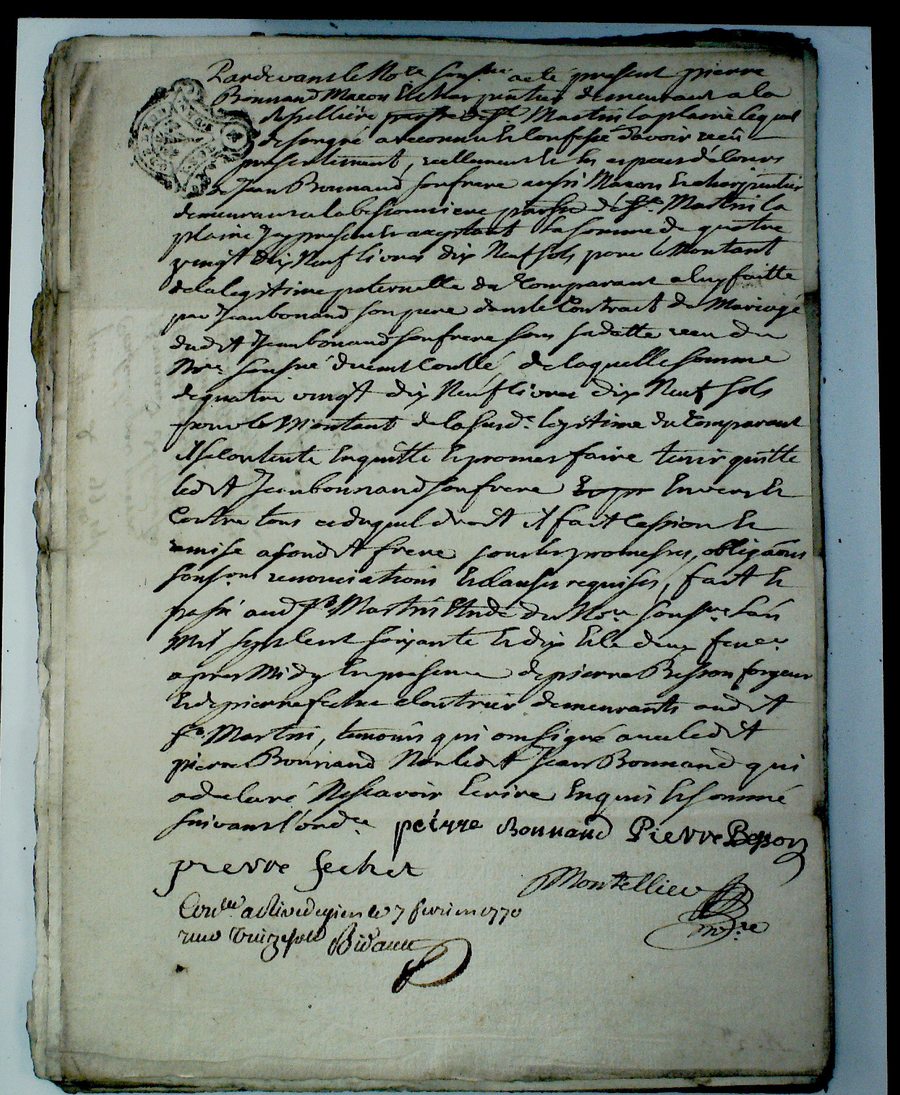 Pardevant le No.re sous.né a été présent pierre
Bonnand Macon et charpentier demeurant a la
pelliere St. Martin la plaine lequel
de son gré a reconnu et confessé d'avoir receu
presentement, reellement et en especes de cours
de Jean Bonnand son frere aussi Macon et charpentier
demeurant a la bessonniere parsse de St. Martin la
plaine Icy present et acceptant la somme de quatre
vingt dix Neuf livres dix Neuf sols pour le Montant
de la legitime paternelle du Comparant a luy faitte
par Jean bonand son pere dans le Contract de Mariage
dudit Jean bonand son frere sous sa datte receu du
No.re sous.né duement Conllé, de laquelle somme
de quatre vingt dix Neuf livres dix Neuf sols
pour le Montant de la susd.e legitime du Comparant
Il se Contente En quitte et promet faire tenir quitte
ledit Jean bonnand son frere Envers et
Contre tous duquel droit il fait Cession et
remise a sondit frere sous les promesses, obligaons
renonciations et clauses requises, fait et
passé aud. St. Martin Etude du No.re sous.né l'an
Mil sept cent soixante et dix et le deux fevr.
apres Midy En presence de pierre Besson forgeur
et de pierre fechet cloutrier demeurants audit
St. Martin, temoins qui ont signé avec ledit
pierre Bonnand Non ledit Jean Bonnand qui
a declaré Ne scavoir Ecrire Enquis et sommé
suivant l'ord.ce peirre Bonnand Pierre Besson
pierre fechet
Montellier
no.re
Con.llé a Rivedegier le 7 fevrier 1770
receu treize sols